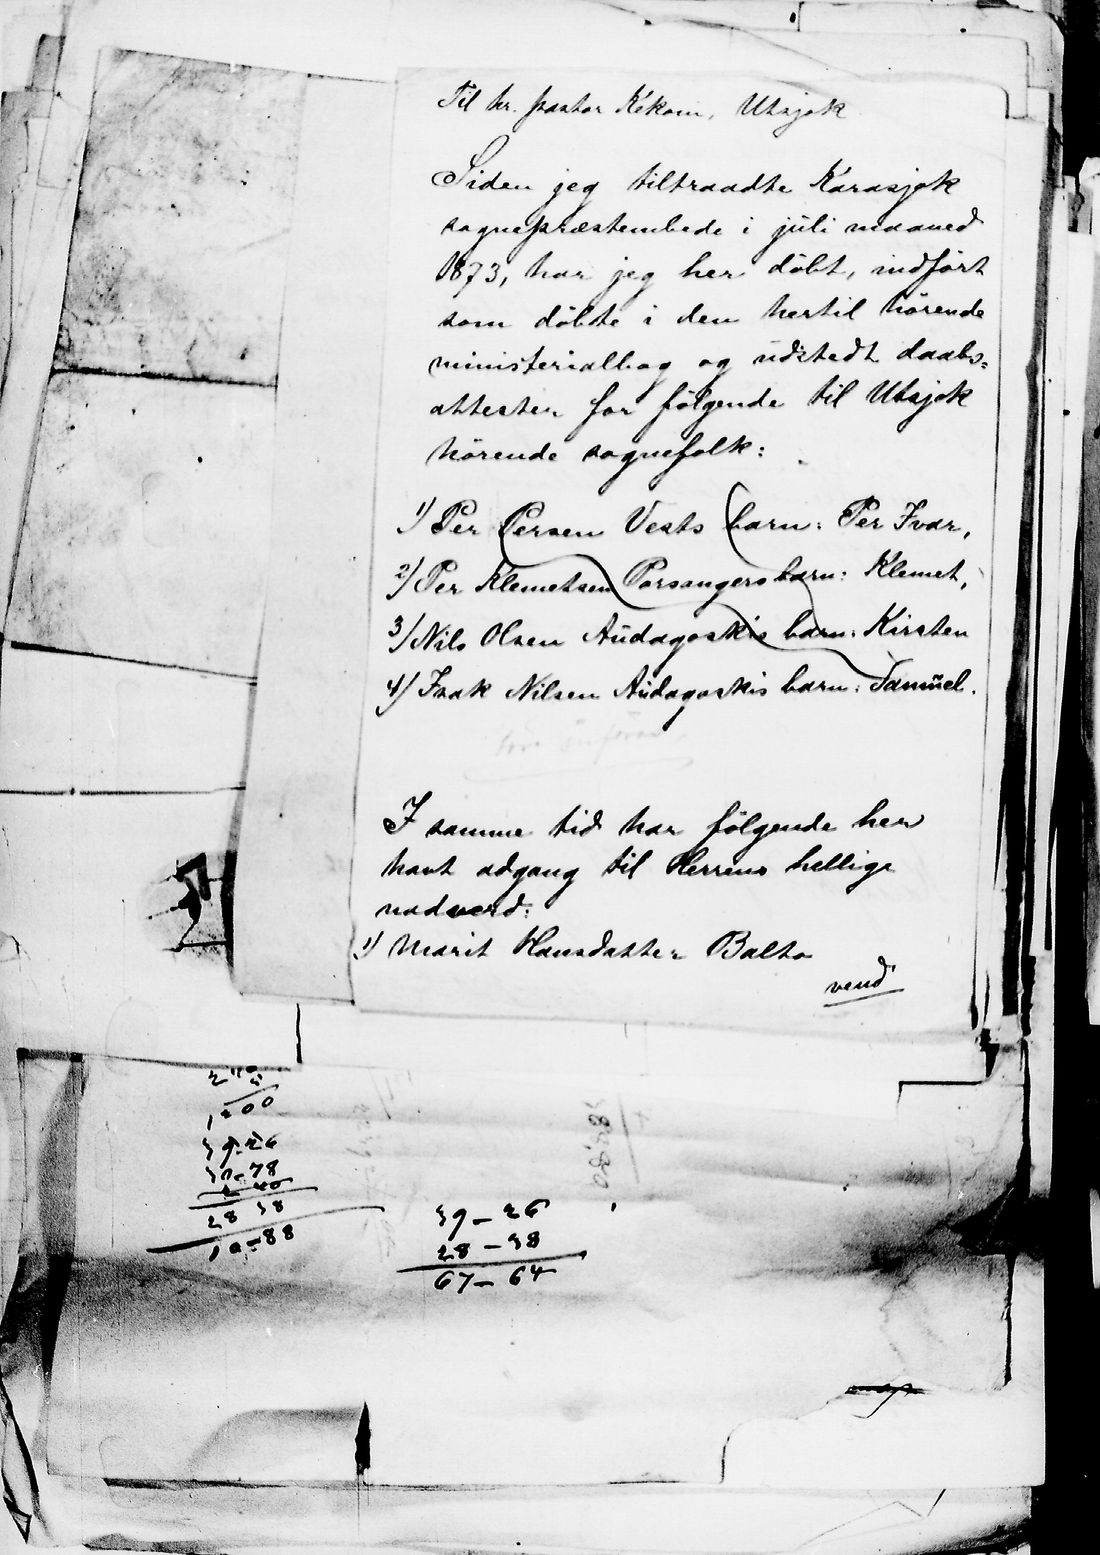 Til hr. pastor Kékoni, Utsjok
Siden jeg tiltraadte Karasjok
sognepræstembede i juli maaned
1873, har jeg her döbt, indført
som döbte i den hertil hörende
ministerialbog og udstedt daabs=
attester for følgende til Utsjok
hörende sognefolk:
1) Per Persen Vests barn: Per Ivar,
2) Per Klemetsen Porsangers barn: Klemet,
3) Nils Olsen Audagoskis barn: Kirsten
4) Isak Nilsen Audagoskis barn: Samuel.
I samme tid har følgende her
havt adgang til Herrens hellige
nadverd:
1) Marit Hansdatter Balto
vend
39-26
28-38
67-64